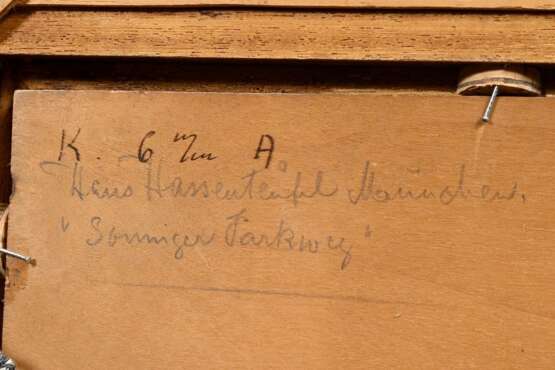 K. 6 m/m A
Hans Hassenteufel München.
"Sonniger Parkweg"